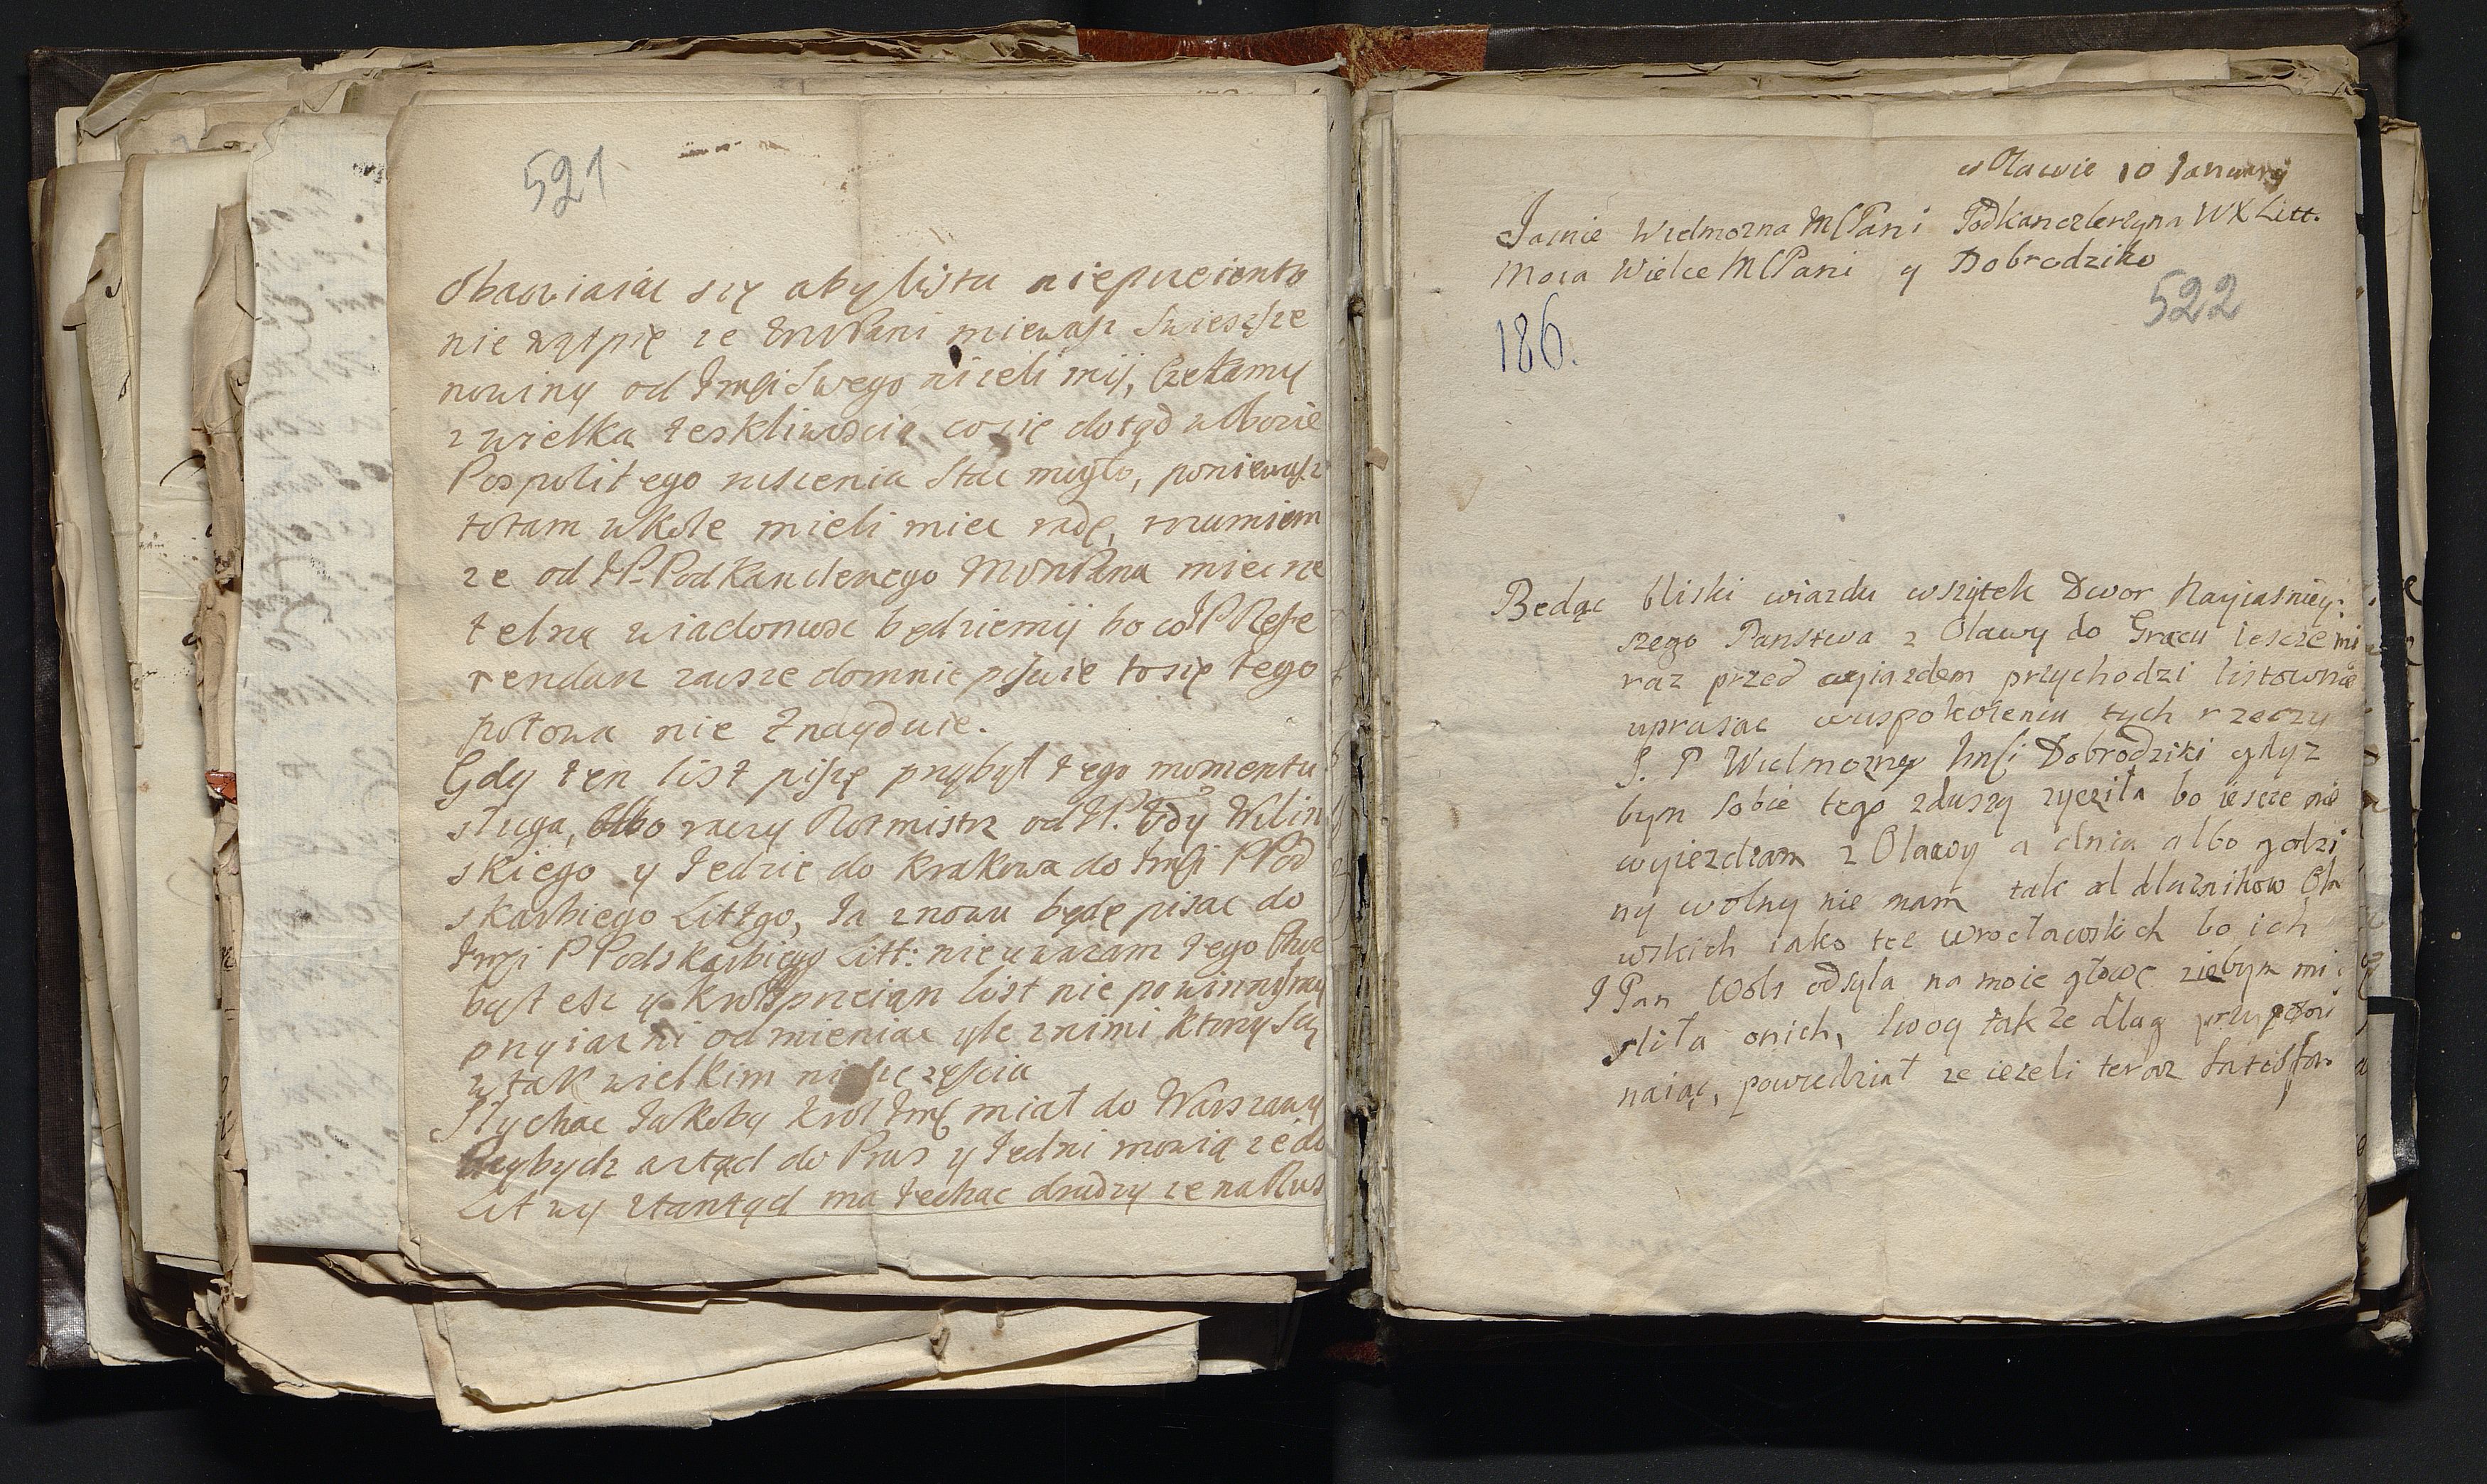 521
Obawiaiac się aby listu nieprzeięnto
nie wątpię ze WMPani miewasz swiesze
nowiny od Jmsi Swego nizeli mij, Czekamy
z wielka teskliwoscią co się dotąd w Obozie
Pospolitego ruszenia Stac mogło, poniewasz
totam w kole mieli miec radę, rozumiem
ze od JP. Podkanclerzego MWMPana miec rze
telna wiadomosc będziemij bo co JP Refe
rendarz zawsze domnie pisuie to się tego
połowa nie Znayduie.
Gdy ten list piszę przybył tego momentu
sługa, albo raczy Rotmistrz od JP. Wdy Wilin
skiego y Jedzie do Krakowa do Jmsi PPod
skarbiego Littgo, Ja znowu będę pisac do
Jmsi PPodskarbiego Litt: nie uwazam tego Choc
by list nie powinnysmy
przyiazni odmieniac yle znimi ktorzy Są
w tak wielkim nieszczęsciu
Słychac Jakoby Krol Jmć miał do Warszawy
Przybydz a ztąd do Prus y Jedni mowią ze do
Litwy ztamtąd ma Jechac drudzy ze na Rus
w Olawie 10 January
Jasnie Wielmozna MCPani Podkanclerzyna WXLitt.
Moia Wielce MCPani y Dobrodziko
522
186.
Będąc bliski wiazdu wszytek Dwor Nayiasniey:
szego Panstwa z Olawy do Gracu ieszcze mi
raz przed wyiazdem przychodzi listownie
uprasac w uspokoieniu tych rzeczy
J. P Wielmozney Jmsi Dobrodziki gdyz
bym sobie tego zduszy zycziła bo iescze nie
wyiezdzam z Olawy a dnia albo godzi
ny wolny nie mam tak od dłuznikow Ola
wskich iako tez wrocławskich bo ich
J Pan Wols odsyla na moie głowe ziebym mi
slila onich, swoy takze dlug przypomi
naiąc, powiedział ze iezeli teraz